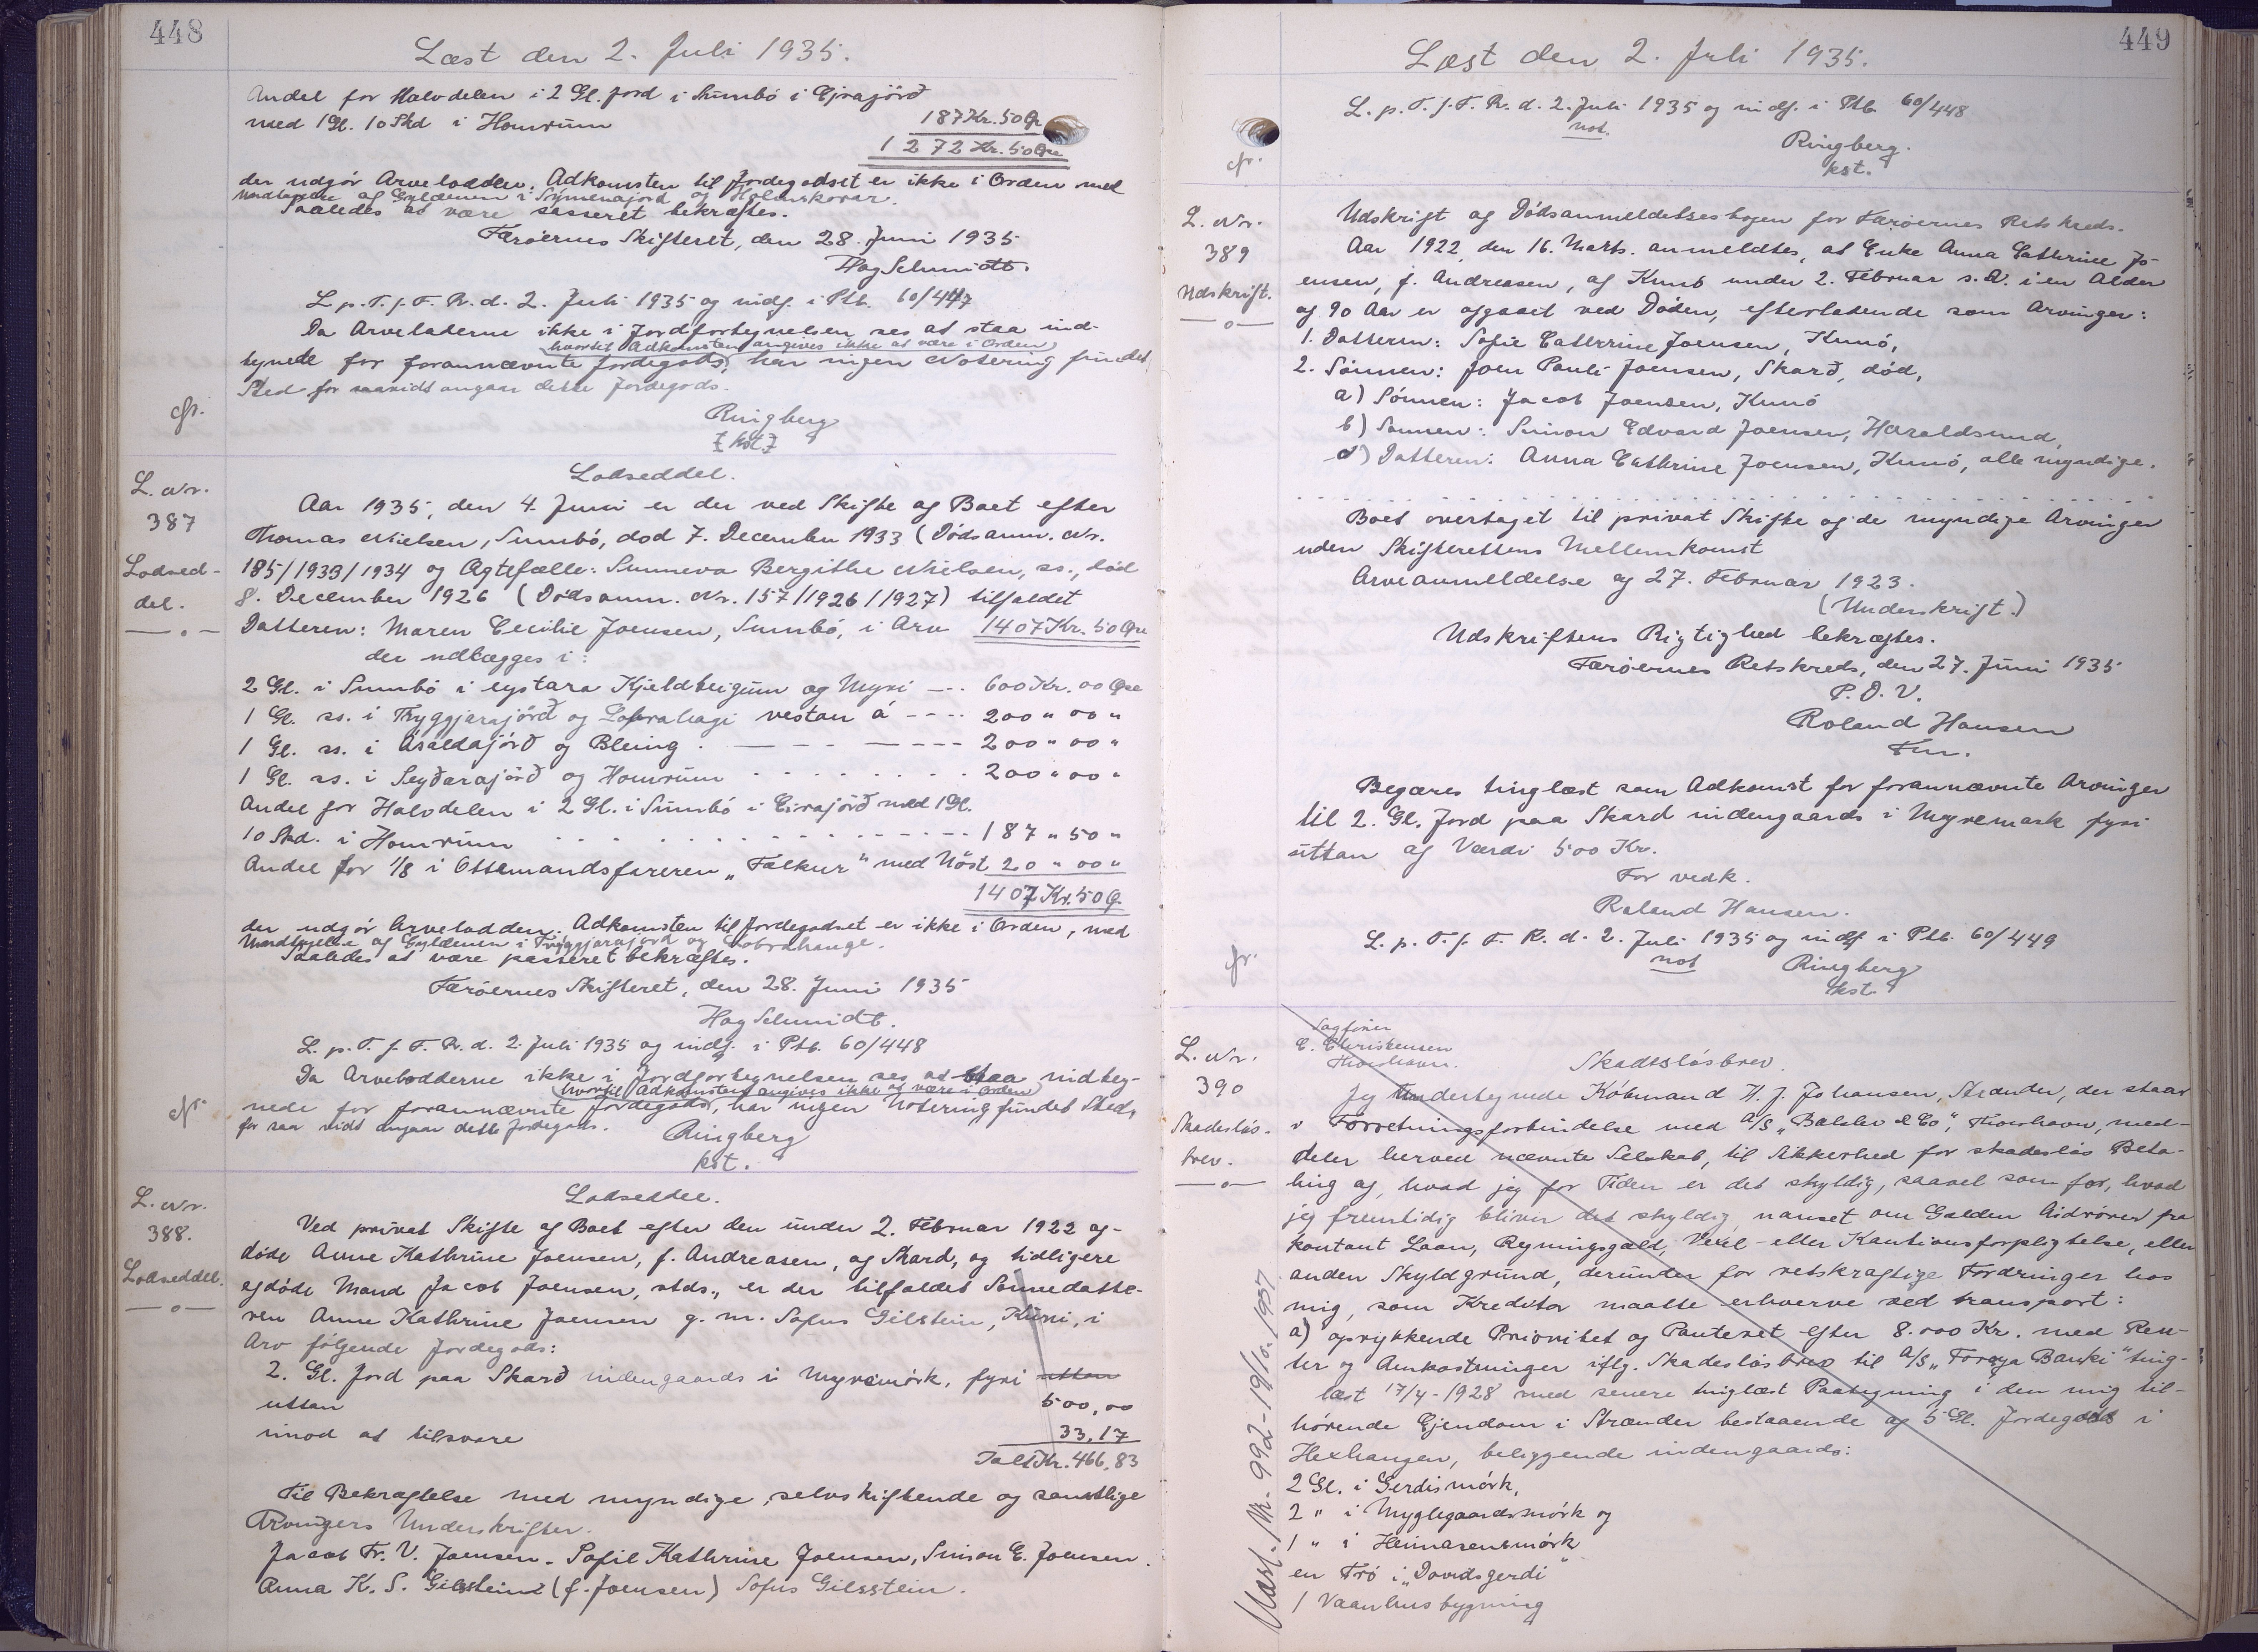 448
Læst den 2. Juli 1935.
Andel for Halvdelen i 2 Gl. Jord i Sumbö i Ejrajörð
med 1 Gl. 10 Skd i Homrum
187 Kr. 50 Ør
1272 Kr. 50 Øre
der udgör Arvelodden. Adkomsten til Jordegodset er ikke i Orden med
Undtagelse af Gyldenen i Símenajord og Holmskorar.
Saaledes at være passeret bekræftes.
Færöernes Skifteret, den 28. Juni 1935
Hag Schmidt.
L. p. T. f. F. R. d. 2. Juli 1935 og indf. i Ptb. 60/447
Da Arveladerne ikke i Jordfortegnelsen ses at staa ind-
hvortil Adkomsten angives ikke at være i Orden
tegnede for forannævnte Jordegods, har ingen Notering fundet
Sted for saavidt angaar dette Jordegods.
cfr.
Ringberg
kst
L. Nr.
387
Lodsed-
del.
Lodseddel.
Aar 1935, den 4. Juni er der ved Skifte af Boet efter
Thomas Nielsen, Sumbö, död 7. December 1933 (Dödsanm. Nr.
185/1933/1934 og Ægtefælle: Sunneva Bergithe Nielsen, ss., död
8. December 1926 (Dödsanm. Nr. 157/1926/1927) tilfaldet
Datteren: Maren Cecilie Joensen, Sumbö, i Arv 1407 Kr. 50 Øre
der udlægges i:
2 Gl. i Sumbö i eystara Kjeldteigum og Myri --- 600 Kr. 00 Øre
1 Gl. ss. i Tryggjarajörð og Lobrahagi vestan á ---- 200 " 00 "
1 Gl. ss. i Ásaldajörð og Bleing . ---- 200 " 00 "
1 Gl. ss. i Seyðarajörð og Homrum . . . . 200 " 00 "
Andel for Halvdelen i 2 Gl. i Sumbö i Eirajörð med 1 Gl.
10 Skd. i Homrum . . . . 187 " 50 "
Andel for 1/8 i Ottemandsfareren „Falkur" med Nöst 20 " 00 "
1407 Kr. 50 Ø.
der udgör Arvelodden. Adkomsten til Jordegodset er ikke i Orden, med
Undtagelse af Gyldenen i Tryggjarajord og Lobrahauge.
Saaledes at være passeret bekræftes.
Færöernes Skifteret, den 28. Juni 1935
Hag Schmidt.
L. p. T. f. F. R. d. 2. Juli 1935 og indf. i Ptb. 60/448
Da Arveladerne ikke i Jordfortegnelsen ses at staa indteg-
hvortil Adkomsten angives ikke at være i Orden
nede for forannævnte Jordegods, har ingen Notering fundet Sted,
for saa vidt angaar dette Jordegods.
cfr.
Ringberg
kst.
L. Nr.
388.
Lodseddel.
Lodseddel.
Ved privat Skifte af Boet efter den under 2. Februar 1922 af-
döde Anne Kathrine Joensen, f. Andreasen, af Skard, og tidligere
afdöde Mand Jacob Joensen, stds., er der tilfaldet Sønnedatte-
ren Anne Kathrine Joensen g. m. Sofus Gilstein, Kuni, i
Arv fölgende Jordegods:
2. Gl. Jord paa Skarð indengaards i Myrimörk, fyri uttan
uttan 500,00
imod at tilsvare 33,17
Ialt Kr. 466,83
Til Bekræftelse med myndige, selvskiftende og samtlige
Arvingers Underskrifter.
Jacob Fr. V. Joensen. Sofie Kathrine Joensen, Simon E. Joensen.
Anna K. S. Gilsstein (f. Joensen) Sofus Gilsstein.
449
Læst den 2. Juli 1935.
L. p. T. f. F. R. d. 2. Juli 1935 og indf. i Ptb. 60/448
not.
cfr.
Ringberg.
kst.
L. Nr.
389
Udskrift.
Udskrift af Dödsanmeldelsesbogen for Færöernes Retskreds.
Aar 1922, den 16. Marts. anmeldtes, at Enke Anna Cathrine Jo-
ensen, f. Andreasen, af Kunö under 2. Februar s. A. i en Alder
af 90 Aar er afgaaet ved Döden, efterladende som Arvinger:
1. Datteren: Sofie Cathrine Joensen, Kunö,
2. Sönnen: Joen Pauli Joensen, Skarð, död,
a) Sönnen: Jacob Joensen, Kunö
b) Sønnen: Simon Edvard Joensen, Haraldsund,
c) Datteren: Anna Cathrine Joensen, Kunö, alle myndige.
Boet overtaget til privat Skifte af de myndige Arvinger
uden Skifterettens Mellemkomst
Arveanmeldelse af 27. Februar 1923.
(Underskrift.)
Udskriftens Rigtighed bekræftes.
Færöernes Retskreds, den 27. Juni 1935
P. D. V.
Roland Hansen
Fm.
Begæres tinglæst som Adkomst for forannævnte Arvinger
til 2. Gl. Jord paa Skard indengaards i Myremark fyri
uttan af Værdi 500 Kr.
For vedk.
Roland Hansen.
L. p. T. f. F. R. d. 2. Juli 1935 og indf i Ptb. 60/449
not
cfr.
Ringberg
kst.
L. Nr.
390
Skadeslös-
brev.
Sagförer
C. Christensen
Thorshavn.
Skadeslösbrev.
Jeg Undertegnede Köbmand H. J. Johansen, Strænder, der staar
i Forretningsforbindelse med A/S „Balslev & Co", Thorshavn, med-
deler herved nævnte Selskab, til Sikkerhed for skadeslös Beta-
ling af, hvad jeg for Tiden er det skyldig, saavel som for, hvad
jeg fremtidig bliver det skyldig, uanset om Gælden hidrörer fra
kontant Laan, Regningsgæld, Vexel- eller Kautionsforpligtelse, eller
anden Skyldgrund, derunder for retskraftige Fordringer hos
mig, som Kreditor maatte erhverve ved transport:
a) oprykkende Prioritet og Panteret efter 8.000 Kr. med Ren-
ter og Omkostninger iflg. Skadeslösbrev til A/S „Föroya Banki" ting-
læst 17/4-1928 med senere tinglæst Paategning i den mig til-
hörende Ejendom i Strænder bestaaende af 5 Gl. Jordegods i
Hexhaugen, beliggende indengaards:
2 Gl. i Gerdismörk,
2 " i Myglegaardsmörk og
1 " i Heimarensmörk
en Trö i „Davidsgerdi"
1 Vaanhusbygning
Udsl. Nr. 992-19/10.1937